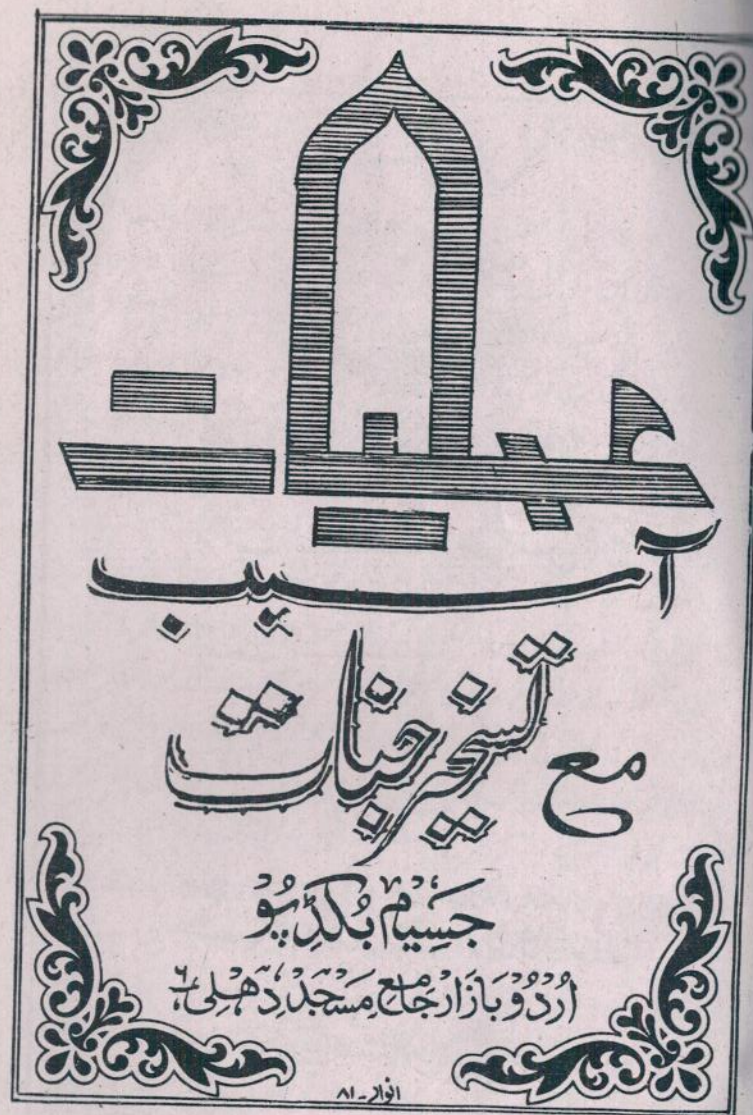 عملیات
آسیب
مع تسخیر جنات
جسیم بکڈپو
اردو بازار جامع مسجد دهلی ۶
انوار ـ ۸۱